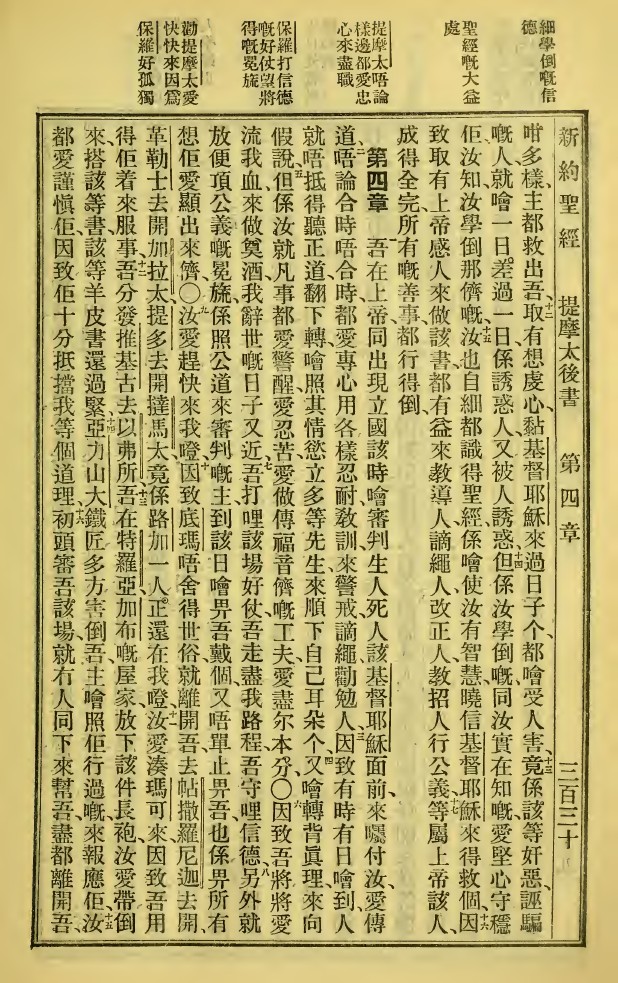 細學倒嘅信
德
聖經嘅大益
處
提摩太唔論
樣邊都愛忠
心來盡職
保羅打信德
嘅好仗望將
得嘅冕旒
勸提摩太愛
快快來因爲
保羅好孤獨
新約聖經 提摩太後書 第四章 三百三十
咁多樣、主都救出吾、十二取有想虔心黏基督耶穌來過日子个、都噲受人害、十三竟係該等奸惡、誆騙
嘅人、就噲一日差過一日、係誘惑人、又被人誘惑、十四但係汝學倒嘅、同汝實在知嘅、愛堅心守穩
佢、汝知汝學倒那儕嘅、十五汝也自細都識得聖經、係噲使汝有智慧、曉信基督耶穌來得救個、十六因
致取有上帝感人來做該書、都有益來教導人、謫繩人、改正人、教招人行公義、十七等屬上帝該人、
成得全完、所有嘅善事都行得倒、
第四章 吾在上帝同出現立國該時噲審判生人死人該基督耶穌面前、來囑付汝、二愛傳
道、唔論合時唔合時、都愛專心、用各樣忍耐教訓、來警戒謫繩勸勉人、三因致有時有日噲到、人
就唔抵得聽正道、翻下轉噲照其情慾、立多等先生、來順下自己耳朵个、四又噲轉背眞理、來向
假說、五但係汝就凡事都愛警醒、愛忍苦、愛做傳福音儕嘅工夫、愛盡尔本分、〇六因致吾將將愛
流我血來做奠酒、我辭世嘅日子又近、七吾打哩該場好仗、吾走盡我路程、吾守哩信德、八另外就
放便頂公義嘅冕旒、係照公道來審判嘅主、到該日噲畀吾戴個、又唔單止畀吾、也係畀所有
想佢愛顯出來儕、〇九汝愛趕快來我嶝、十因致底瑪唔舍得世俗、就離開吾、去帖撒羅尼迦去開、
革勒士去開加拉太、提多去開撻馬太、十一竟係路加一人、正還在我嶝、汝愛湊瑪可來、因致吾用
得佢着來服事吾、十二吾分發推基古去以弗所、十三吾在特羅亞加布嘅屋家、放下該件長袍、汝愛帶倒
來、搭該等書、該等羊皮書還過緊、十四亞力山大鐵匠多方害倒吾、主噲照佢行過嘅來報應佢、十五汝
都愛謹愼佢、因致佢十分抵擋我等個道理、十六初頭審吾該場、就冇人同下來幫吾、盡都離開吾、